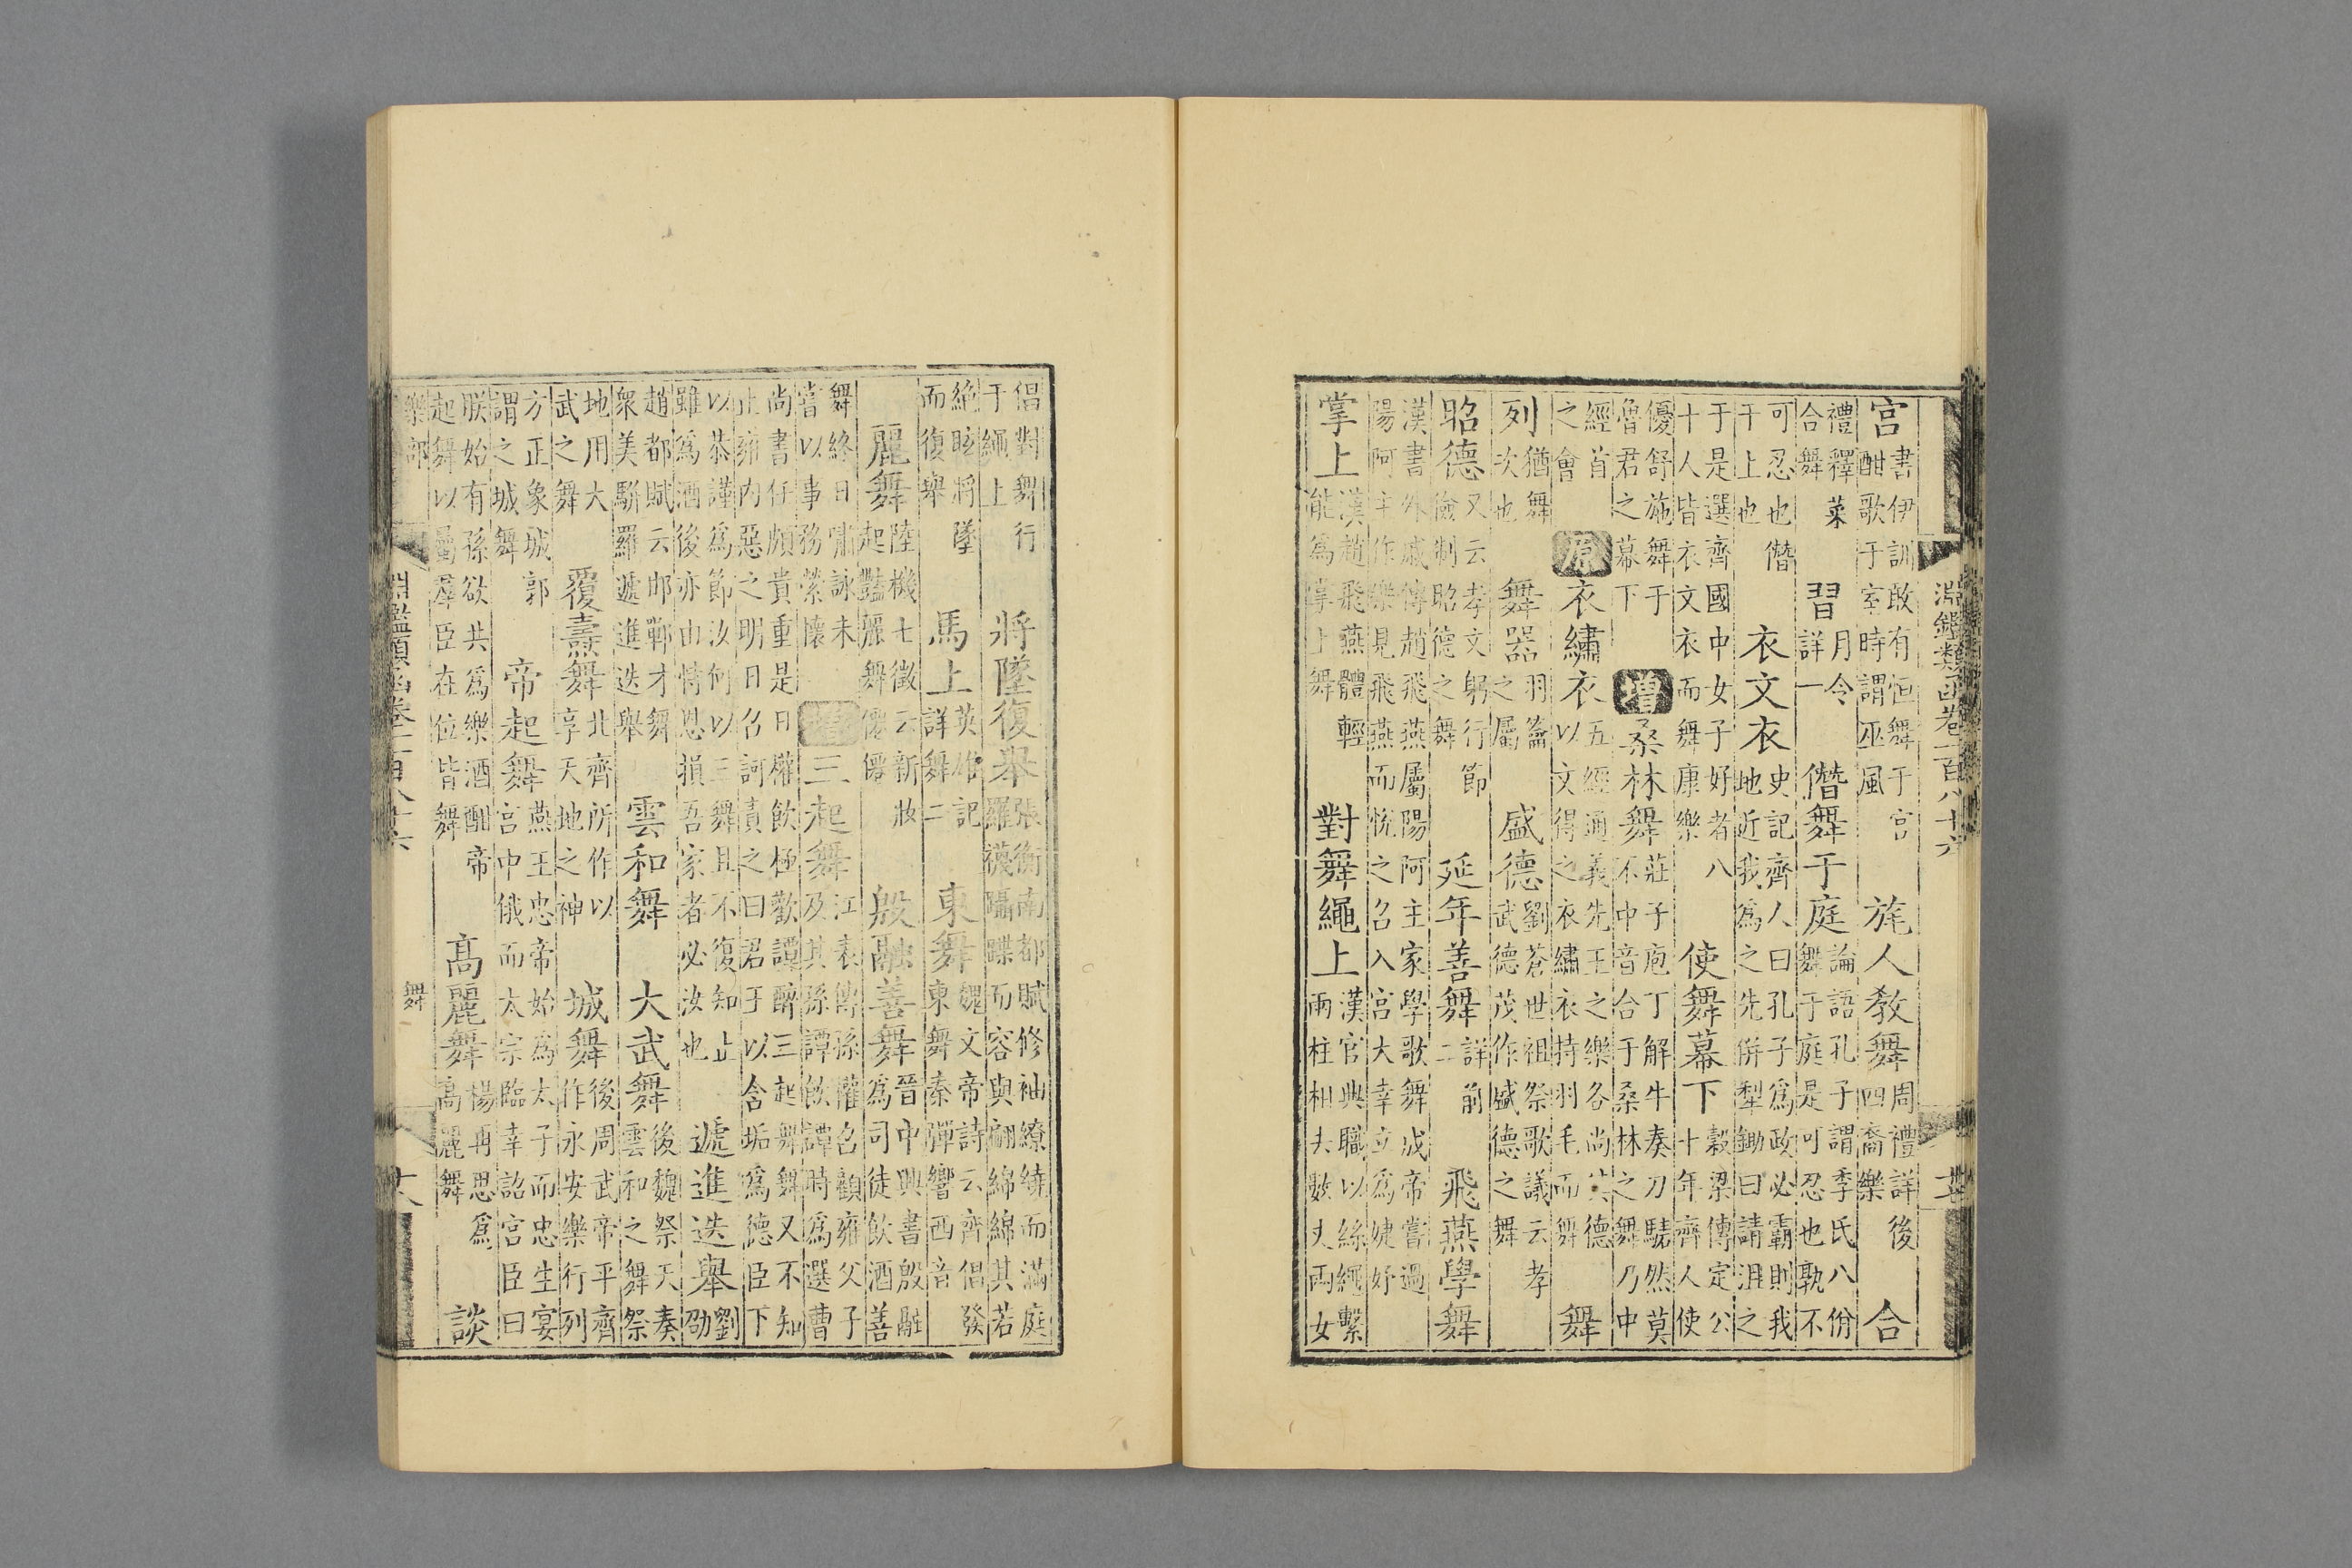 淵鑑類函卷一百八十六
宮書伊訓敢有恒舞于宮酣歌于室時謂巫風 旄人教舞周禮詳後四裔樂 合
禮釋菜合舞 習月令詳一 僭舞于庭論語孔子謂季氏八佾舞于庭是可忍也孰不
可忍也僭干上也 衣文衣史記齊人曰孔子爲政必霸則我地近我爲之先併犁鋤曰請沮之
于是選齊國中女子好者八十人皆衣文衣而舞康樂 使舞幕下穀梁傳定公十年齊人使
優舒施舞于魯君之幕下 增桑林舞莊子庖丁解牛奏刀騞然莫不中音合于桑林之舞乃中
經首之會 原衣繡衣五經通義先王之樂各尚其德以文得之衣繡衣持羽毛而舞 舞
列猶舞次也 舞器羽籥之屬 盛德劉蒼世祖祭歌議云孝武德茂作盛德之舞
昭德又云孝文躬行節儉制昭德之舞 延年善舞詳前二 飛燕學舞
漢書外戚傳趙飛燕屬陽阿主家學歌舞成帝嘗過陽阿主作樂見飛燕而悅之召入宮大幸立爲婕妤
掌上漢趙飛燕體輕能爲掌上舞 對舞繩上漢官典職以絲繩繫兩柱相去數丈兩女
倡對舞行于繩上 將墜復舉張衡南都賦修袖繚繞而滿庭羅襪躡蹀而容與翩綿綿其若
絕眩將墜而復舉 馬上英雄記詳舞二 東舞魏文帝詩云齊倡發東舞秦彈響西音
麗舞陸機七徵云新妝起豔麗舞僊僊 殷融善舞晉中興書殷融爲司徒飲酒善
舞終日嘯詠未嘗以事務縈懷 增三起舞江表傳孫權召顧雍父子及其孫譚飲譚時爲選曹
尚書任頗貴重是日權飲極歡譚醉三起舞舞又不知止雍內惡之明日召訶責之曰君子以含垢爲德臣下
以恭謹爲節汝何以三舞且不復知止雖爲酒後亦由恃恩損吾家者必汝也 遞進迭舉劉劭
趙都賦云邯鄲才舞衆美駢羅遞進迭舉 雲和舞 大武舞後魏祭天奏雲和之舞祭
地用大武之舞 覆燾舞北齊所作以享天地之神 城舞後周武帝平齊作永安樂行列
方正象城郭謂之城舞 帝起舞燕王忠帝始爲太子而忠生宴宮中俄而太宗臨幸詔宮臣曰
朕始有孫欲共爲樂酒酣帝起舞以屬羣臣在位皆舞 高麗舞楊再思爲高麗舞 談
樂部 舞
淵鑑類函卷一百八十六